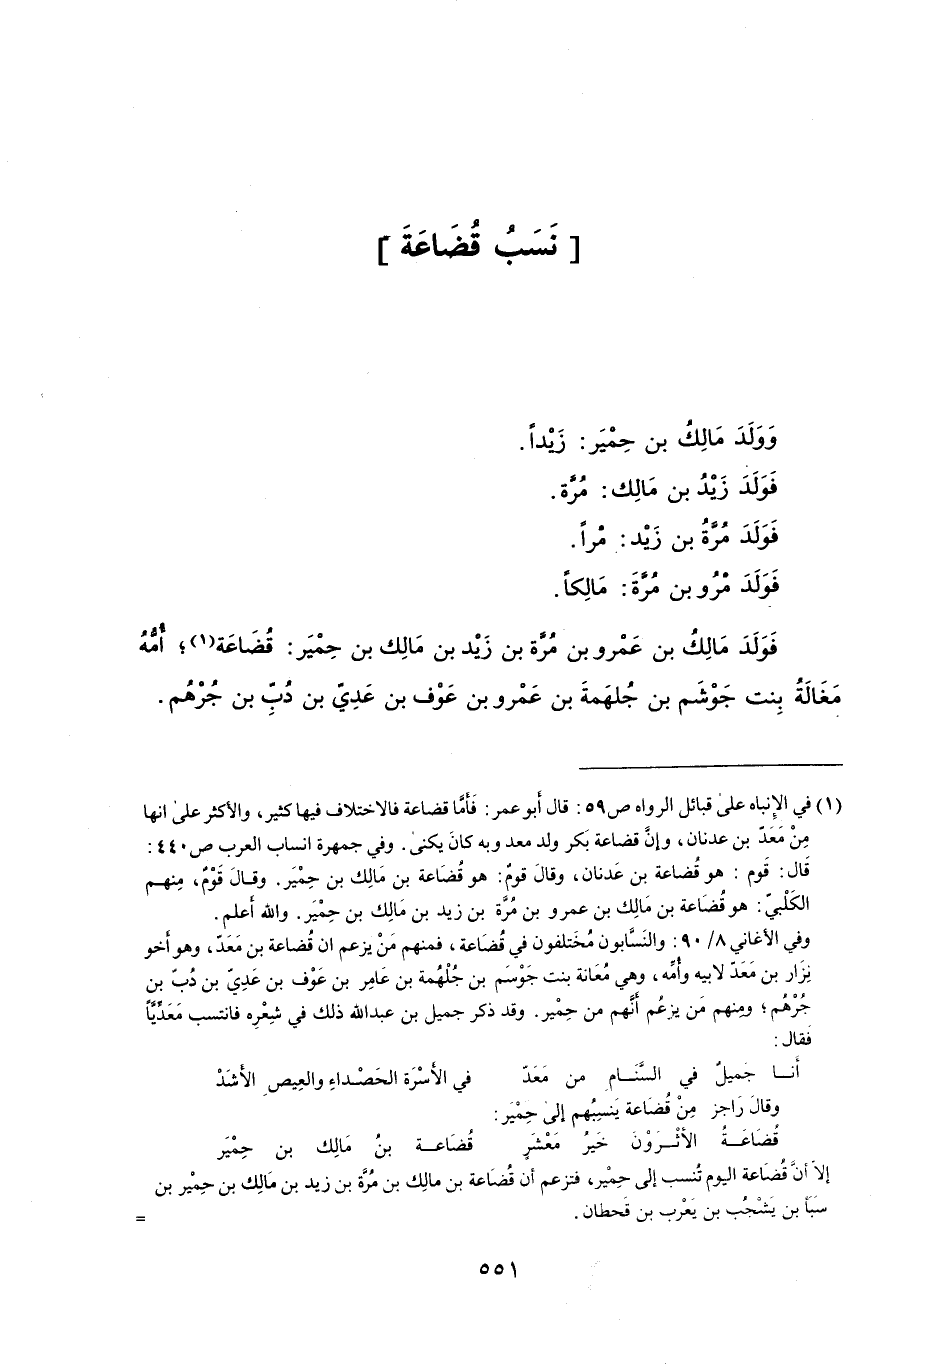 [ نَسَبُ قُضَاعَةَ ]
وَوَلَدَ مَالِكُ بن حِمْيَر: زَيْداً.
فَوَلَدَ زَيْدُ بن مَالِك: مُرَّة.
فَوَلَدَ مُرَّةُ بن زَيْد: مْراً.
فَوَلَدَ مْرُو بن مُرَّةَ: مَالِكاً.
فَوَلَدَ مَالِكُ بن عَمْرو بن مُرَّة بن زَيْد بن مَالِك بن حِمْيَر: قُضَاعَة(١)؛ أُمُّهُ
مَغَالَةُ بِنت جَوْشَم بن جُلهَمةَ بن عَمْرو بن عَوْف بن عَدِيّ بن دُبِّ بن جُرْهُم.
(١) في الإنباه علىٰ قبائل الرواه ص٥٩: قال أبو عمر: فَأَمَّا قضاعة فالاختلاف فيها كثير، والأكثر علىٰ انها
مِنْ مَعَدّ بن عدنان، وإنَّ قضاعة بَكر ولد معد وبه كانَ يكنىٰ. وفي جمهرة انساب العرب ص٤٤٠:
قَال: قَوم: هو قُضاعة بن عَدنان، وقالَ قومٌ: هو قُضاعة بن مَالِك بن حِمْيَر. وقـالَ قَوْمٌ، مِنهـم
الكَلْبيّ: هو قُضاعة بن مَالك بن عمرو بن مُرَّة بن زيد بن مَالِك بن حِمْيَر. والله أعلم.
وفي الأغاني ٨/ ٩٠: والنَسَّابون مُختلفون في قُضاعة، فمنهم مَنْ يزعم ان قُضاعة بن مَعَدّ، وهو أخو
نِزَار بن مَعَدّ لابيه وأُمِّه، وهي مُعَانة بنت جَوْسَم بن جُلْهُمة بن عَامِر بن عَوْف بن عَدِيّ بن دُبّ بن
جُرْهُم؛ ومِنهم مَن يزعُم أَنَّهم من حِمْير. وقد ذكر جميل بن عبدالله ذلك في شِعْرِه فانتسب مَعَدِّيَّاً
فَقال:
أَنــا جَميلٌ في السَّنَــام من مَعَدّ في الأسْرَة الحَصْـداءِ والعِيصِ الأشَدّ
وقالَ رَاجز مِنْ قُضاعة يَنسِبُهم إلىٰ حِمْيَر:
قُضَاعَــةُ الأثْـرَوْنَ خَيرُ مَعْشَرِ قُضَاعــة بنُ مَالِك بن حِمْيَر
إلا أنَّ قُضاعة اليوم تُنسب إلى حِمْير، فتزعم أن قُضاعة بن مالِك بن مُرَّة بن زيد بن مَالِك بن حمْير بن
سَبَأ بن يَشْجُب بن يَعْرب بن قَحطان. =
٥٥١